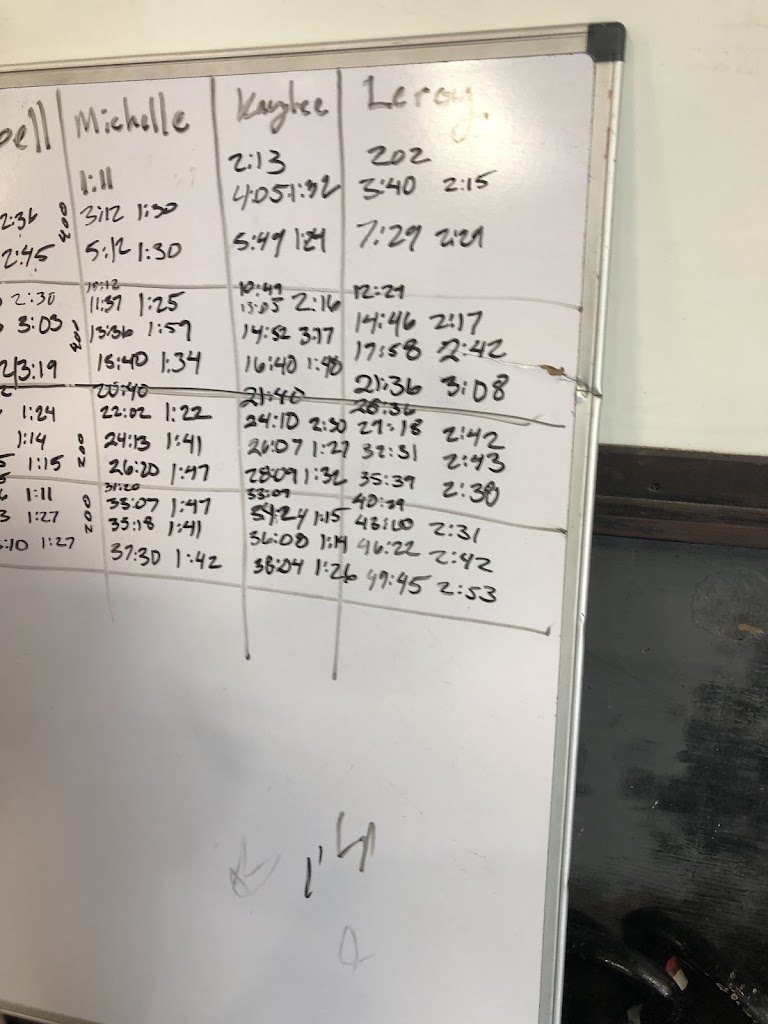 Michelle Kaylee Leroy
2:13 202
1:11 4:05 1:32 3:40 2:15
2:36 400 3:12 1:30 5:49 7:29 2:29
2:45 5:12 1:30
10:12 10:49 12:29
2:30 11:37 1:25 13:05 2:16 14:46 2:17
3:03 200 13:36 1:59 14:52 3:17 17:58 2:42
3:19 15:40 1:34 16:40 1:48 21:36 3:08
20:40 21:40 26:36
1:24 22:02 1:22 24:10 2:30 29:18 2:42
1:14 200 24:13 1:41 26:07 1:27 32:31 2:43
1:15 26:20 1:47 28:09 1:32 35:39 2:38
31:20 33:09 40:39
1:11 33:07 1:47 34:24 1:15 2:31
1:27 200 35:18 1:41 36:08 1:14 46:22 2:42
:10 1:27 37:30 1:42 38:04 1:26 49:45 2:53